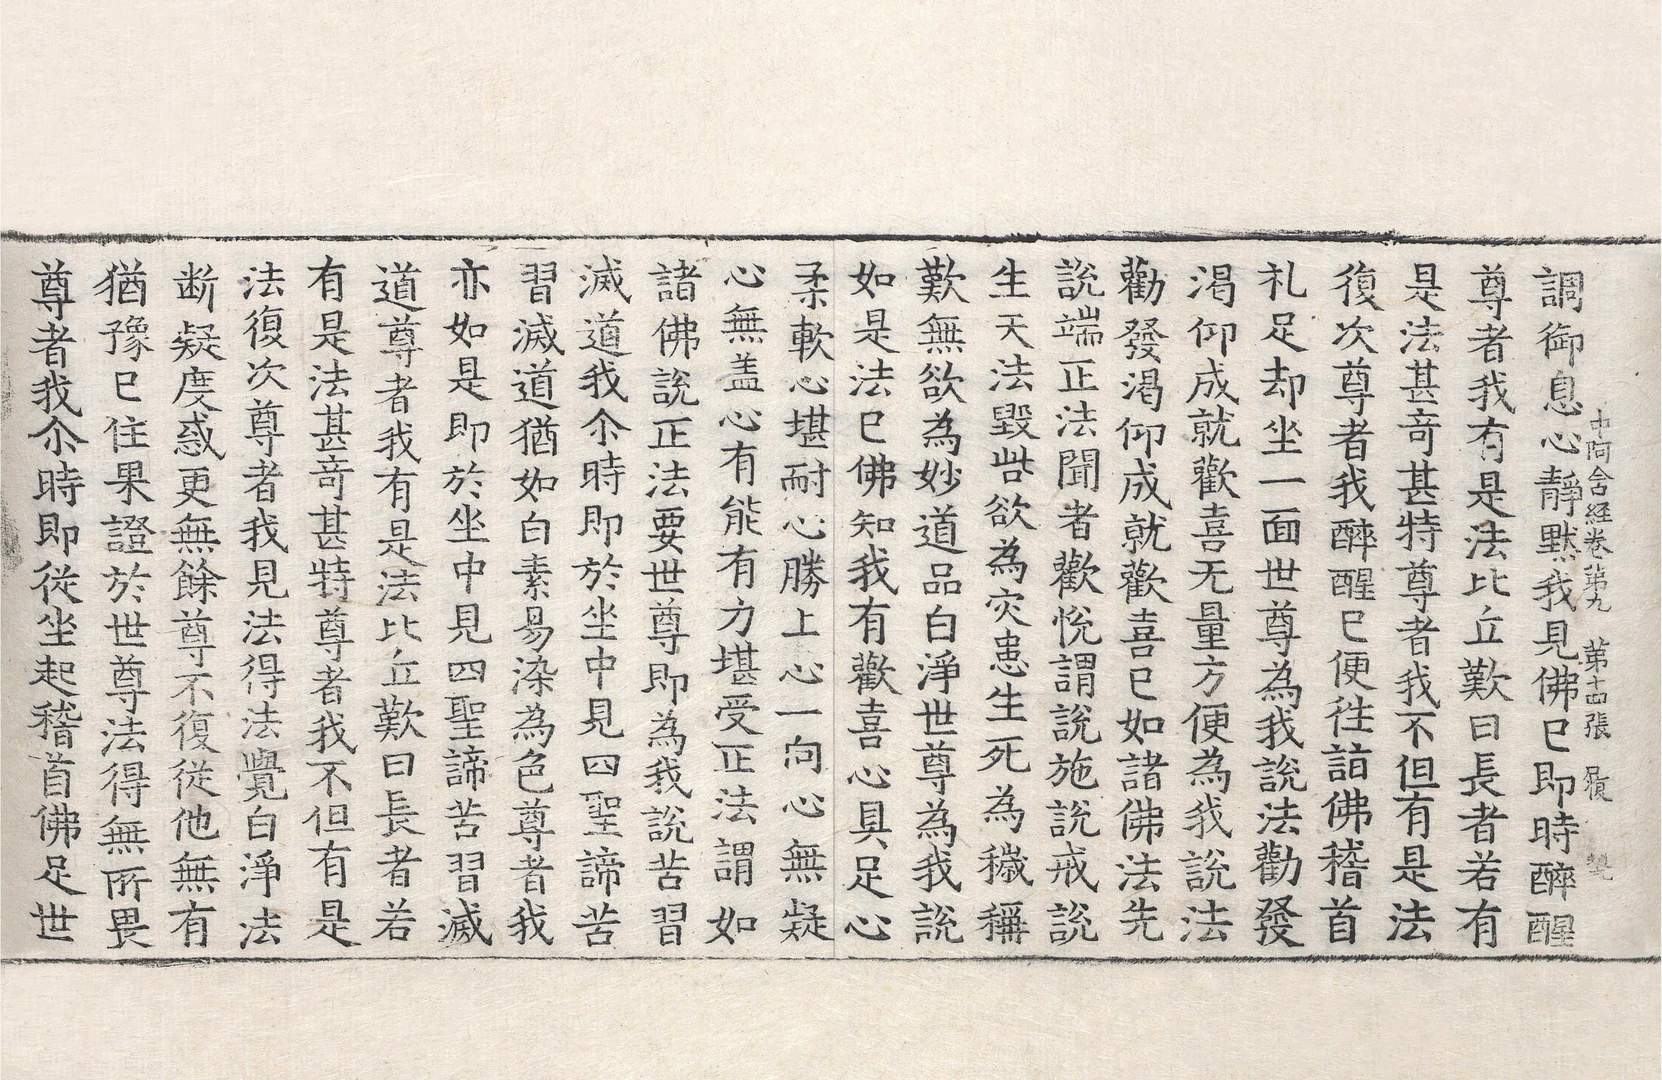 中阿含経卷第九　第十四張　履
調御息心靜默我見佛已即時醉醒
尊者我有是法比丘歎曰長者若有
是法甚竒甚特尊者我不但有是法
復次尊者我醉醒已便徃詣佛稽首
礼足却坐一面世尊為我說法勸發
渴仰成就歡喜无量方便為我說法
勸發渴仰成就歡喜已如諸佛法先
說端正法聞者歡悅謂說施說戒說
生天法毀呰欲為灾患生死為穢稱
歎無欲為妙道品白淨世尊為我說
如是法已佛知我有歡喜心具足心
柔軟心堪耐心勝上心一向心無疑
心無盖心有能有力堪受正法謂如
諸佛說正法要世尊即為我說苦習
滅道我尒時即於坐中見四聖諦苦
習滅道猶如白素易染為色尊者我
亦如是即於坐中見四聖諦苦習滅
道尊者我有是法比丘歎曰長者若
有是法甚竒甚特尊者我不但有是
法復次尊者我見法得法覺白淨法
断疑度惑更無餘尊不復從他無有
猶豫已住果證於世尊法得無所畏
尊者我尒時即從坐起稽首佛足世